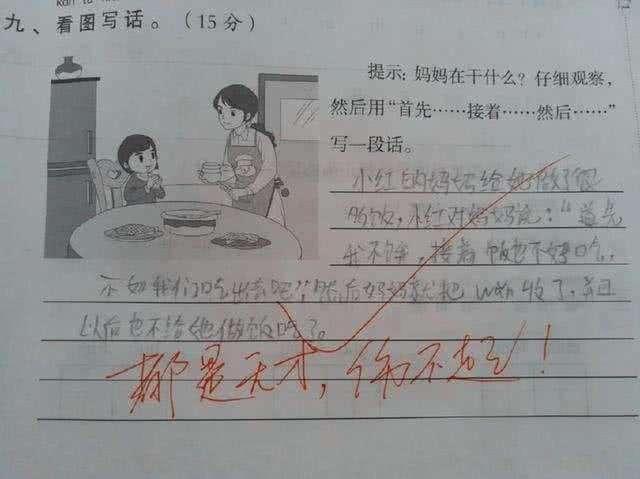 九、看图写话。（15分）
提示：妈妈在干什么？仔细观察，
然后用“首先……接着……然后……”
写一段话。
小红的妈妈给她做好了
饭，小红对妈妈说：“首先
我不饿，接着饭也不好吃，
不如我们吃出去吧”，然后妈妈就把收了，并且
以后也不给她做饭吃了。
都是天才，伤不起！